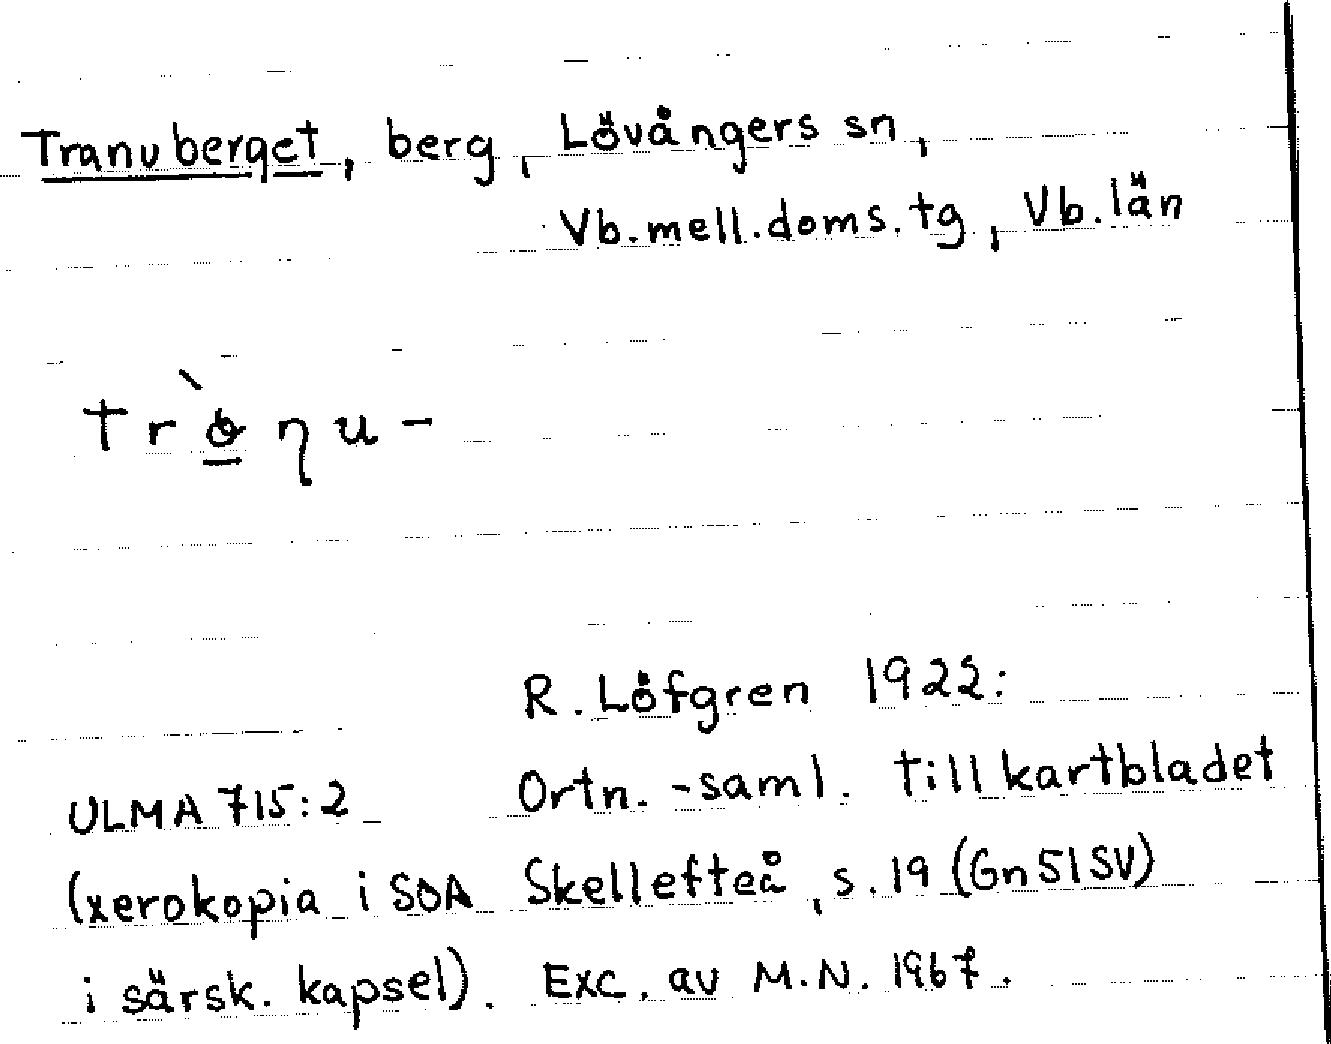 Tranuberget, berg, Lövångers sn,
Vb.mell.doms.tg, Vb.län
R. Löfgren 1922:
ULMA 715:2 Ortn.-saml. till kartbladet
(xerokopia i SOA Skellefteå, s.19 (Gn51SV)
i särsk. kapsel). Exc. av M.N. 1967.